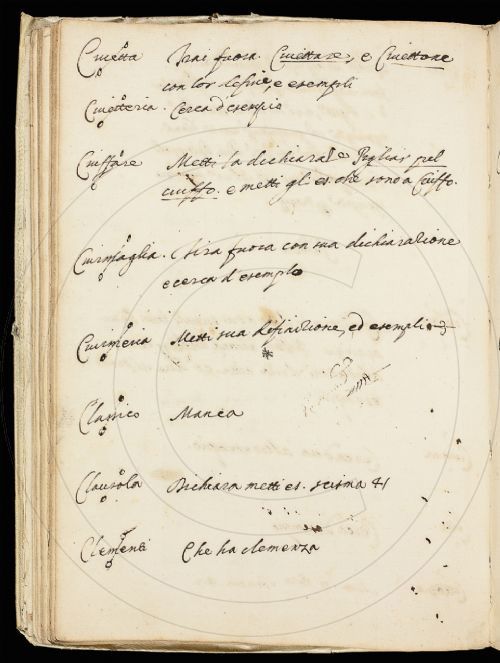 Civetta Trai fuora. Civettare, e Civettone
con lor defin, e esempli
Civetteria. Cerca d'esempio
Ciuffare Metti la dichiaraz.e Pigliar pel
ciuffo. e metti gli es. che sono a Ciuffo.
Ciurmaglia. Tira fuora con sua dichiarazione
e cerca d'esemplo
Ciurmeria Metti sua definizione, ed esempli
Classico Manca
Clausola Dichiara metti es. scisma 41
Clemente Che ha clemenza